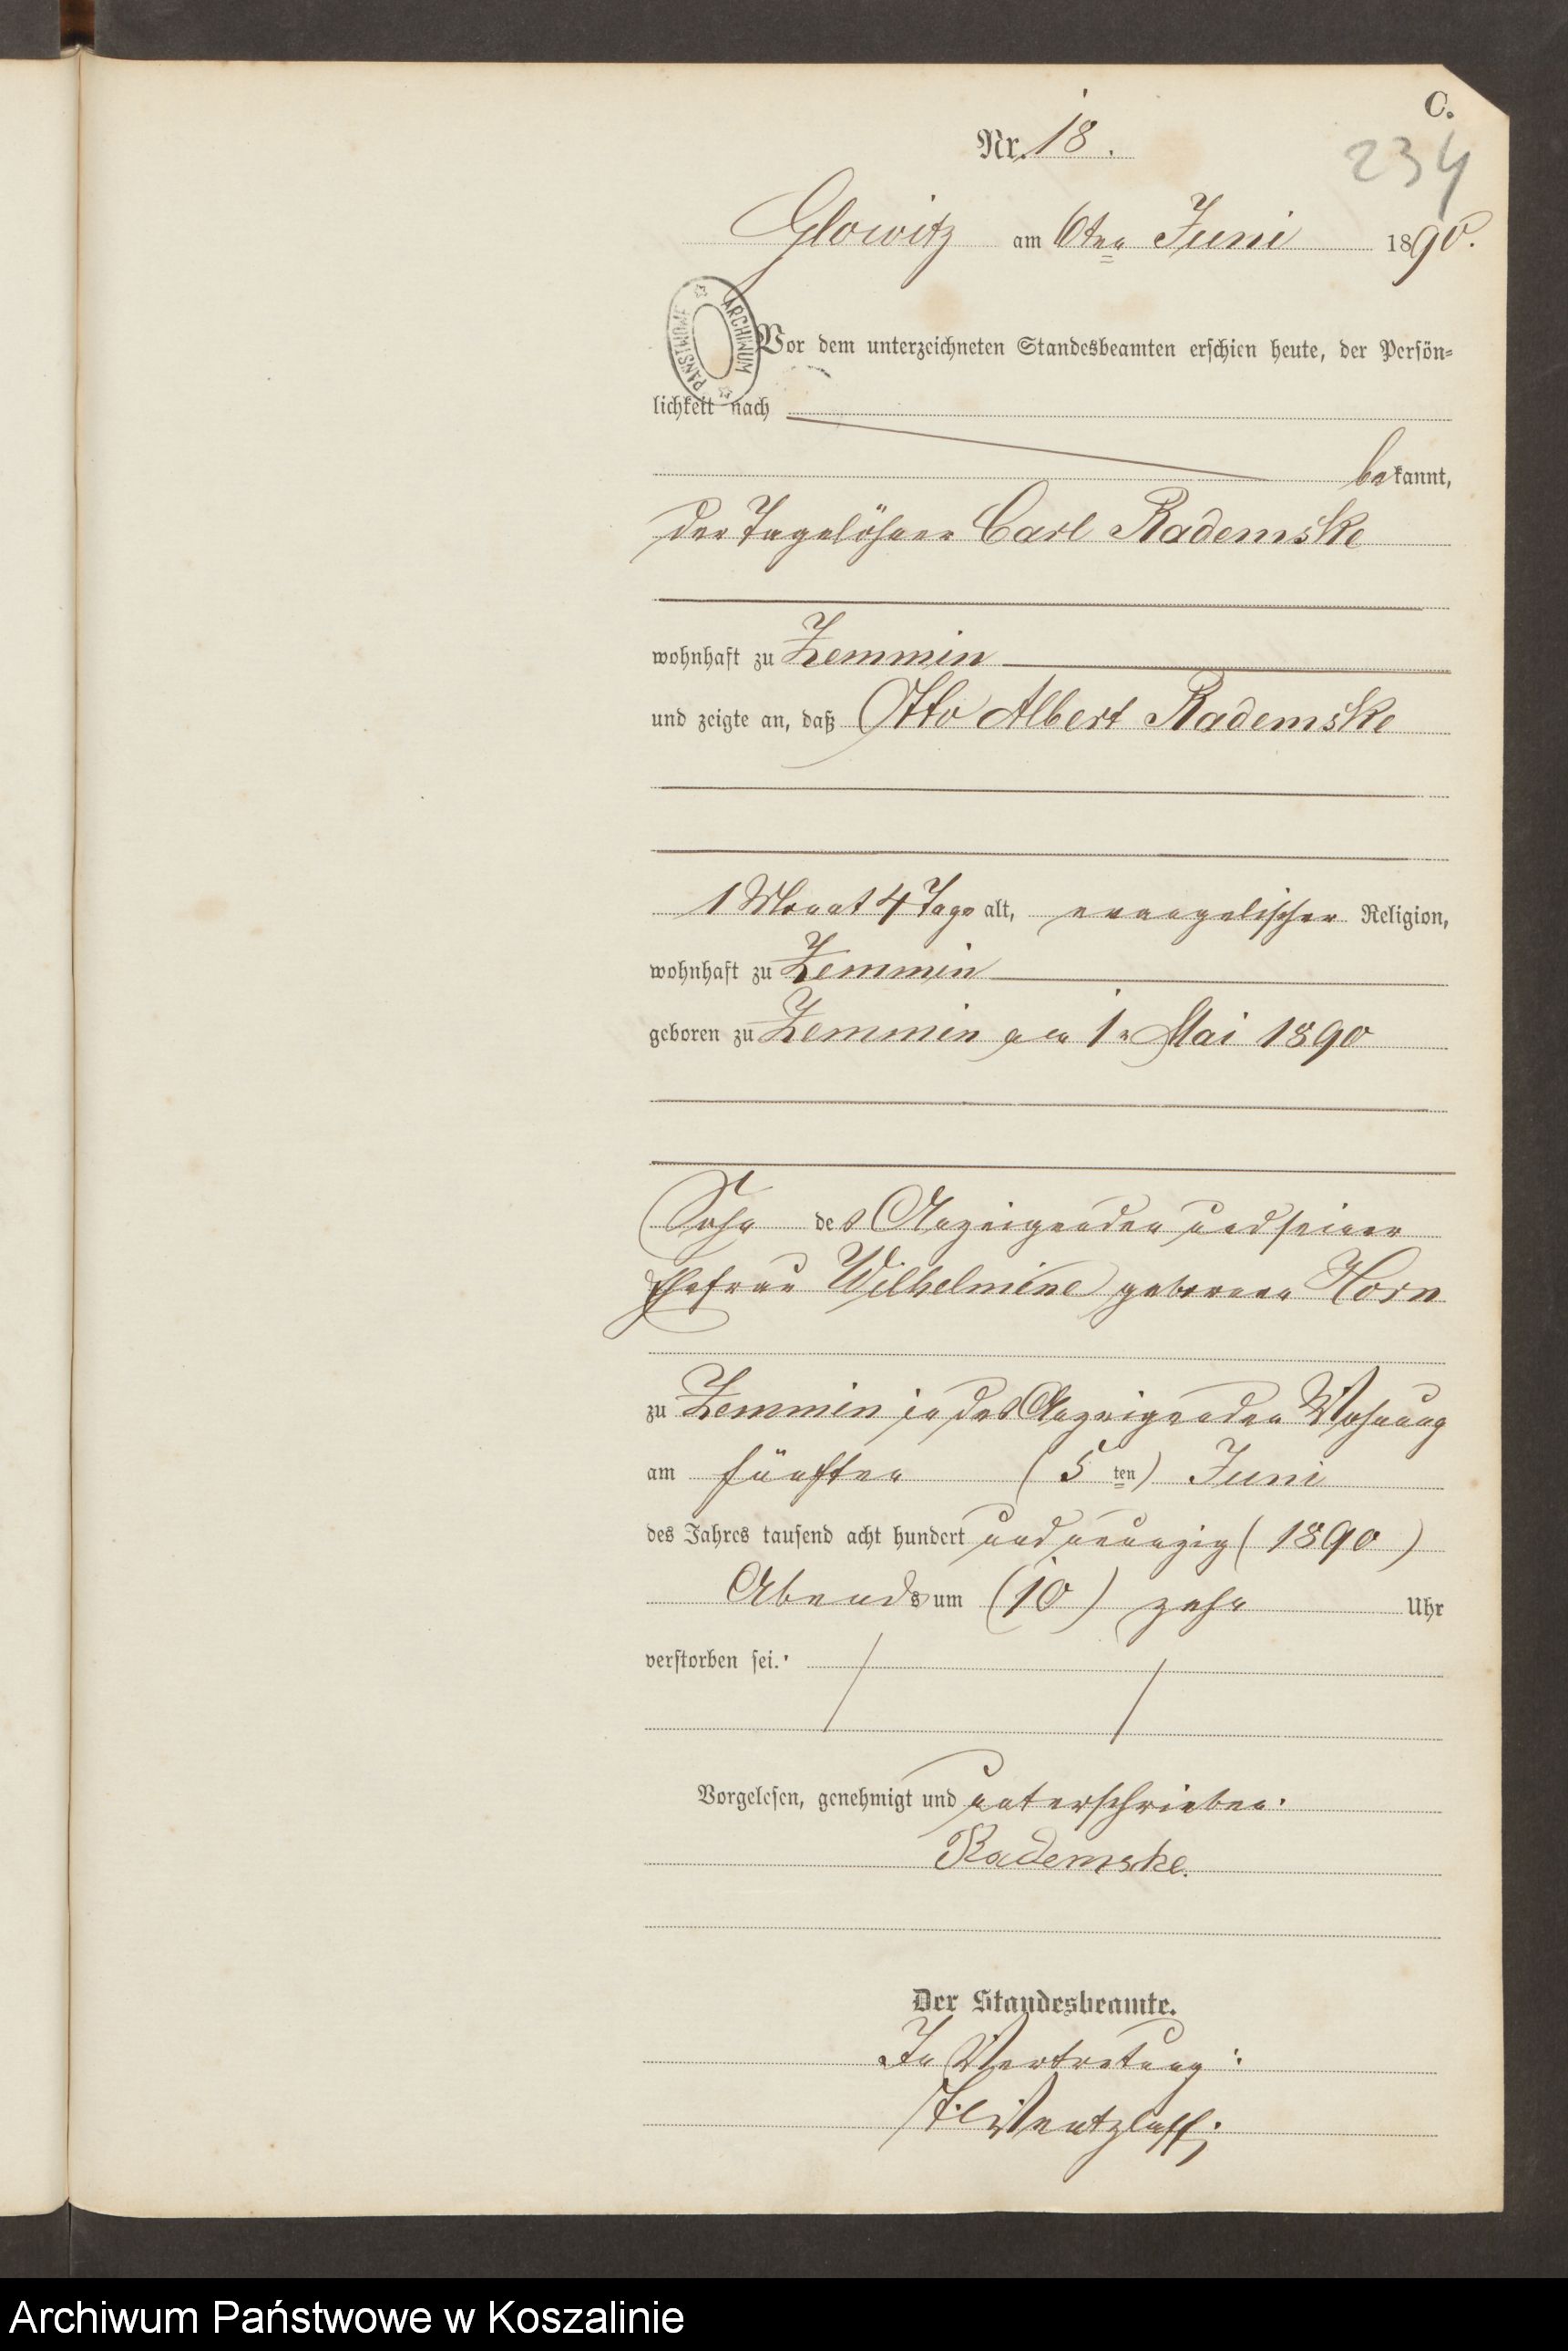 C.
Nr. 18.
234
Glowitz am 6ten Juni 1890.
ARCHIWUM PAŃSTWOWE
Vor dem unterzeichneten Standesbeamten erschien heute, der Persön-
lichkeit nach
bekannt,
der Tagelöhner Carl Rademske
wohnhaft zu Zemmin
und zeigte an, daß Otto Albert Rademske
1 Monat 4 Tage alt, evangelischer Religion,
wohnhaft zu Zemmin
geboren zu Zemmin am 1n Mai 1890
Sohn des Anzeigenden und seiner
Ehefrau Wilhelmine geborene Horn
zu Zemmin in des Anzeigenden Wohnung
am fünften (5ten) Juni
des Jahres tausend acht hundert und neunzig (1890)
Abends um (10) zehn Uhr
verstorben sei.
Vorgelesen, genehmigt und unterschrieben.
Rademske.
Der Standesbeamte.
In Vertretung:
Wentzlaff.
Archiwum Państwowe w Koszalinie